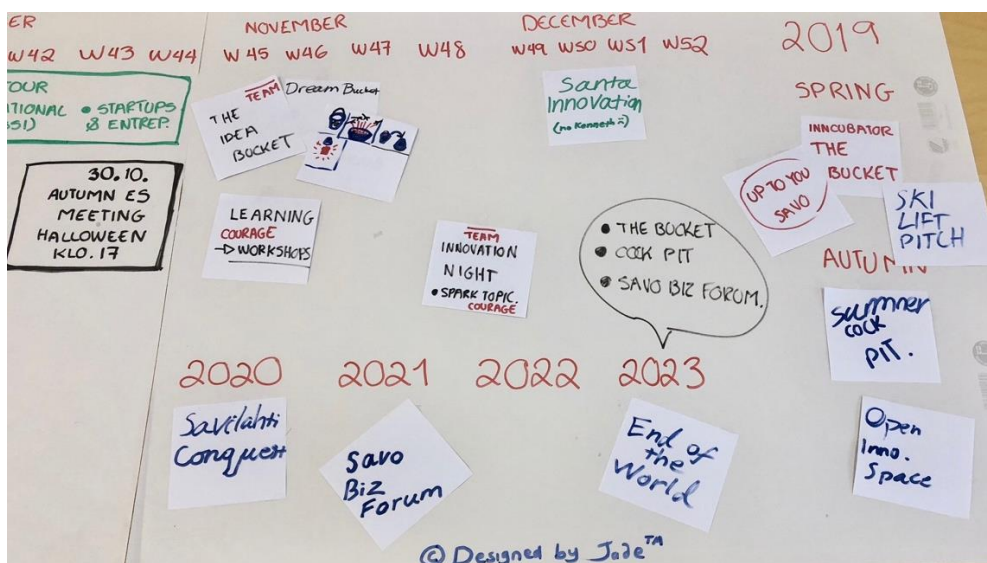 ER
W42 W43 W44
OUR
TIONAL
SSI)
• STARTUPS
& ENTREP.
30.10.
AUTUMN ES
MEETING
HALLOWEEN
KLO. 17
NOVEMBER
W 45 W46 W47 W48
TEAM
THE
IDEA
BUCKET
Dream Bucket
LEARNING
COURAGE
→ WORKSHOPS
TEAM
INNOVATION
NIGHT
• SPARK TOPIC.
COURAGE
DECEMBER
W49 W50 W51 W52
Santa
Innovation
(no Kenneth)
• THE BUCKET
• COCK PIT
• SAVO BIZ FORUM.
2019
SPRING
INNCUBATOR
THE
BUCKET
UP TO YOU
SAVO
SKI
LIFT
PITCH
AUTUMN
summer
COCK
PIT.
Open
Inno.
Space
2020 2021 2022 2023
Savilahti
Conquest
Savo
Biz
Forum
End of
the
World
© Designed by Jade TM